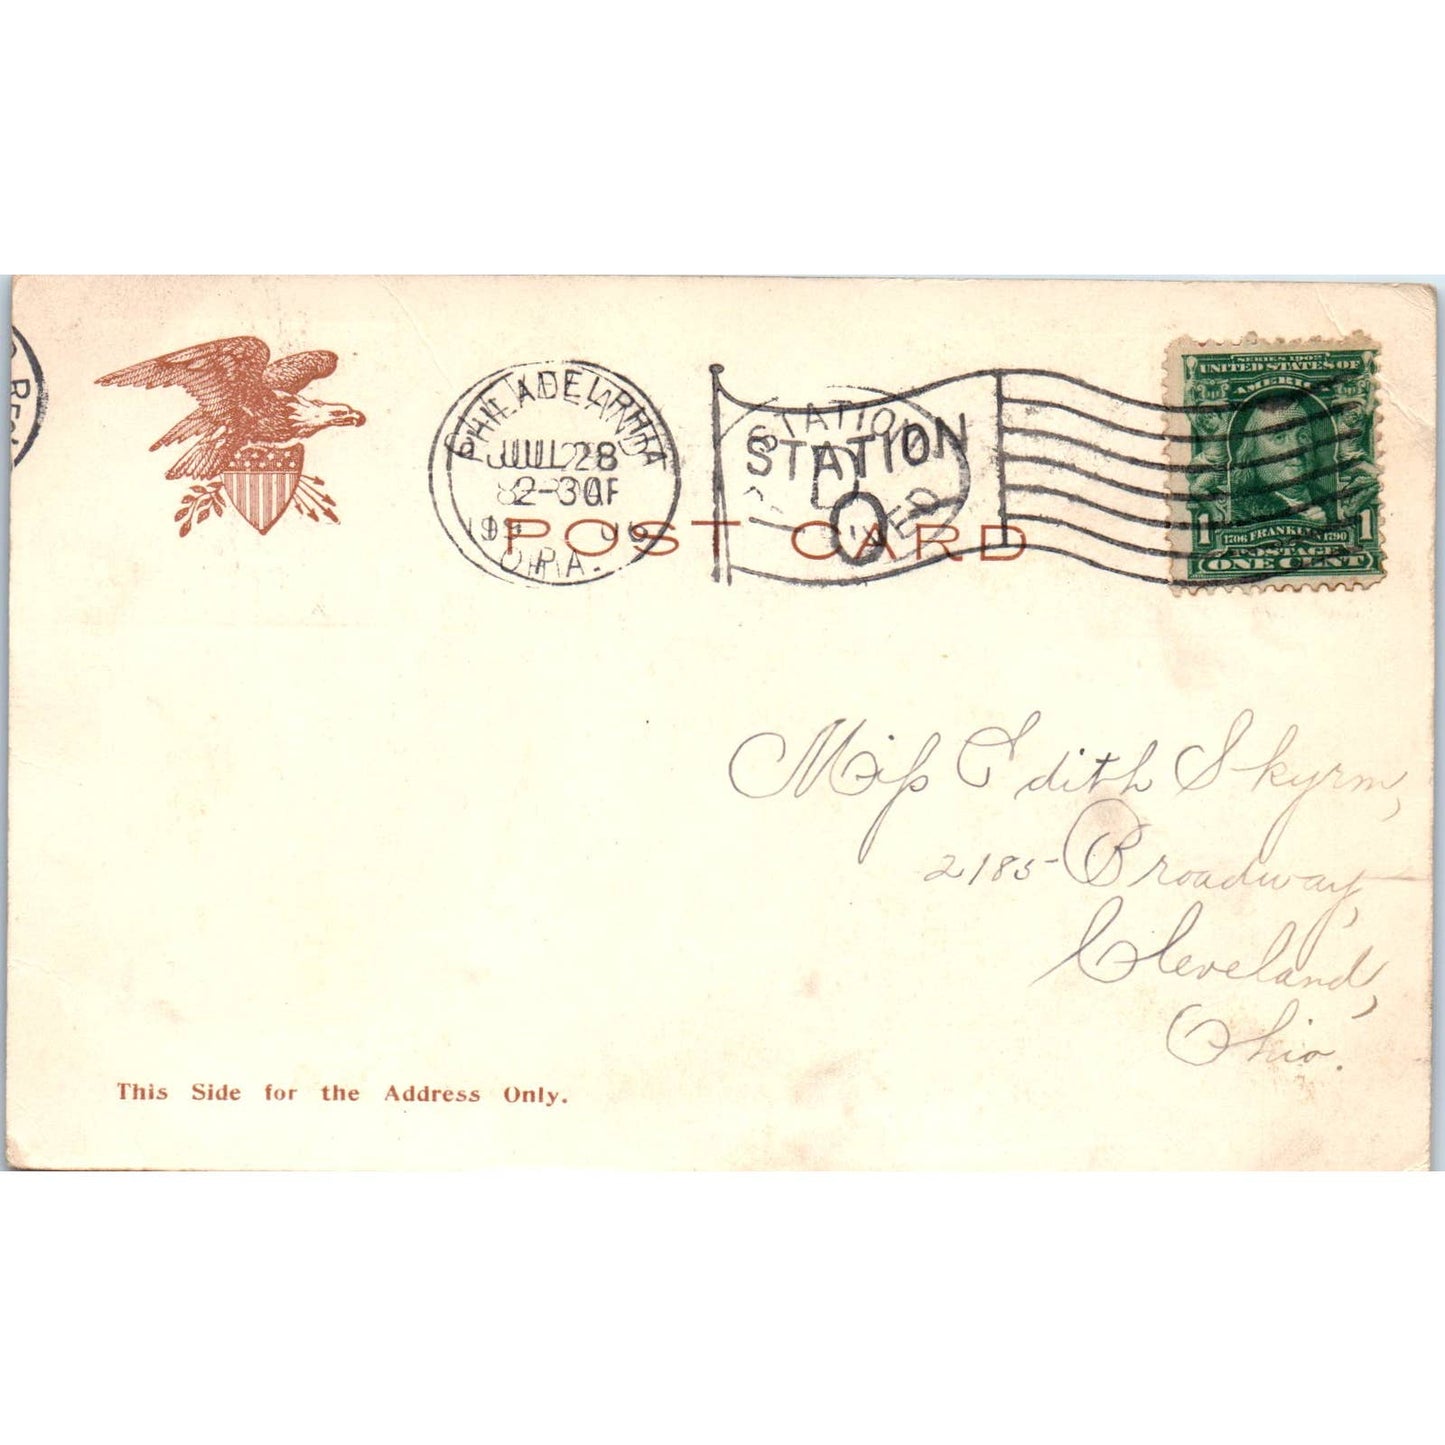 PHILADELPHIA
JUL 28
2-30P
PA.
STATION
O
STATION
D
POST CARD
SERIES 1902
UNITED STATES OF
AMERICA
1706 FRANKLIN 1790
1 1
POSTAGE
ONE CENT
Miss Edith Skyrm,
2185 - Broadway,
Cleveland,
Ohio.
This Side for the Address Only.